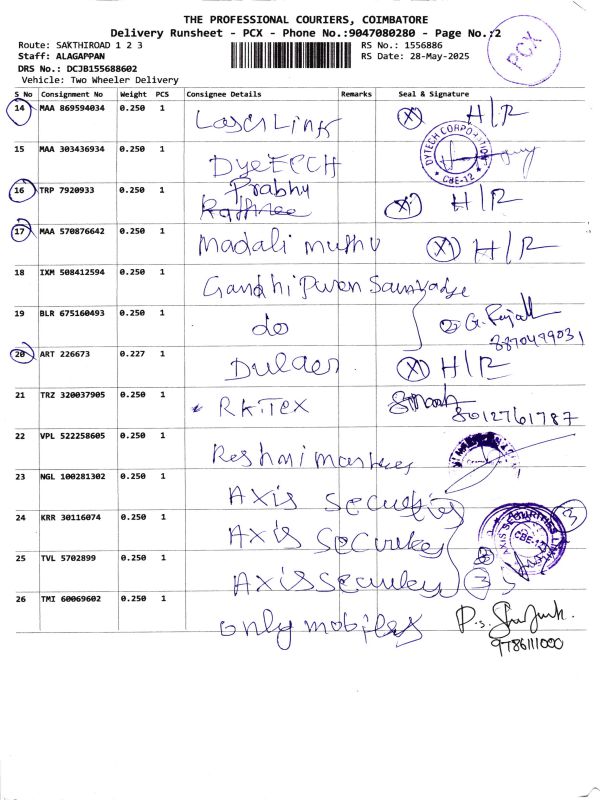 THE PROFESSIONAL COURIERS, COIMBATORE
Delivery Runsheet - PCX - Phone No.:9047080280 - Page No.:2
PCX
Route: SAKTHIROAD 1 2 3
RS No.: 1556886
Staff: ALAGAPPAN
RS Date: 28-May-2025
DRS No.: DCJB155688602
Vehicle: Two Wheeler Delivery
S No Consignment No Weight PCS Consignee Details Remarks Seal & Signature
14 MAA 869594034 0.250 1 Laser Link X H/R
15 MAA 303436934 0.250 1 DyeTECH DYTECH CORPORATION CBE-12
16 TRP 7920933 0.250 1 Prabhu X H/R
17 MAA 570876642 0.250 1 Madali muthu X H/R
18 IXM 508412594 0.250 1 Gandhi
19 BLR 675160493 0.250 1 do G.
20 ART 226673 0.227 1 X H/R
21 TRZ 320037905 0.250 1 RKTEX 8012761787
22 VPL 522258605 0.250 1 Reshmi
23 NGL 100281302 0.250 1 AXis Securities
24 KRR 30116074 0.250 1 AXis Securites 3
AXIS SECURITIES CBE-12
25 TVL 5702899 0.250 1 AXis 3
26 TMI 60069602 0.250 1 only mobiles P.S.
9786111000